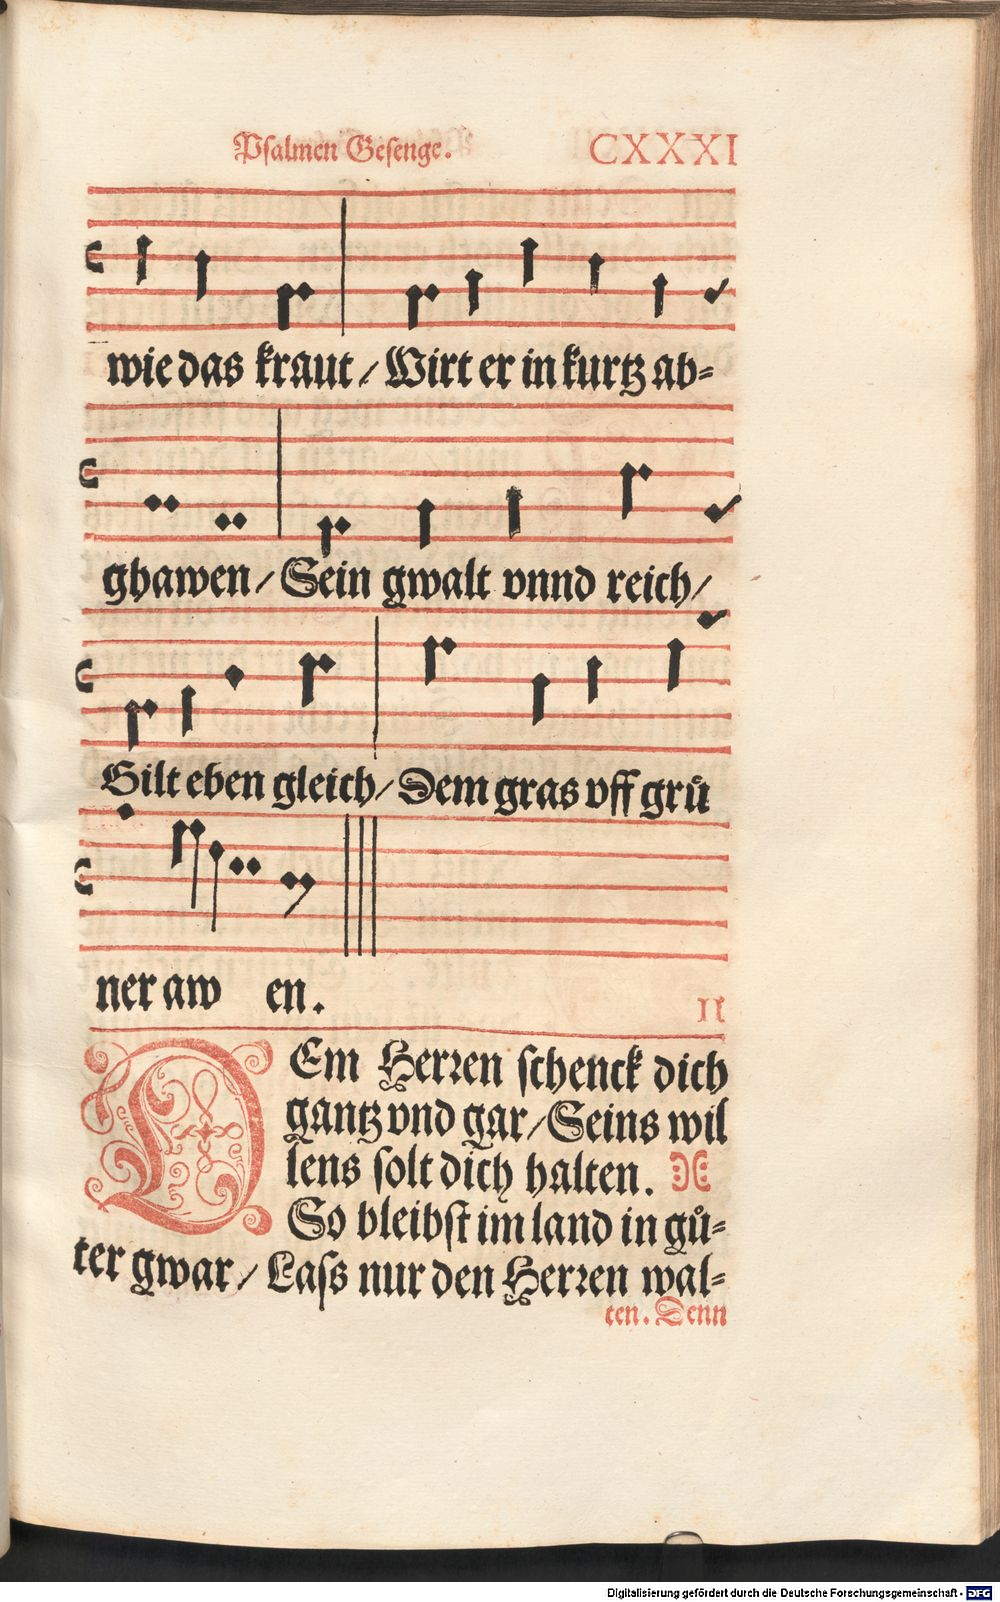 Psalmen Gesenge. CXXXI
wie das kraut / Wirt er in kurtz ab⸗
ghawen / Sein gwalt vnnd reich /
Gilt eben gleich / Dem gras vff grů
ner aw en.
II
DEm Herren schenck dich
gantz vnd gar / Seins wil
lens solt dich halten.
So bleibst im land in gů⸗
ter gwar / Lass nur den Herren wal⸗
ten. Denn
Digitalisierung gefördert durch die Deutsche Forschungsgemeinschaft - DFG